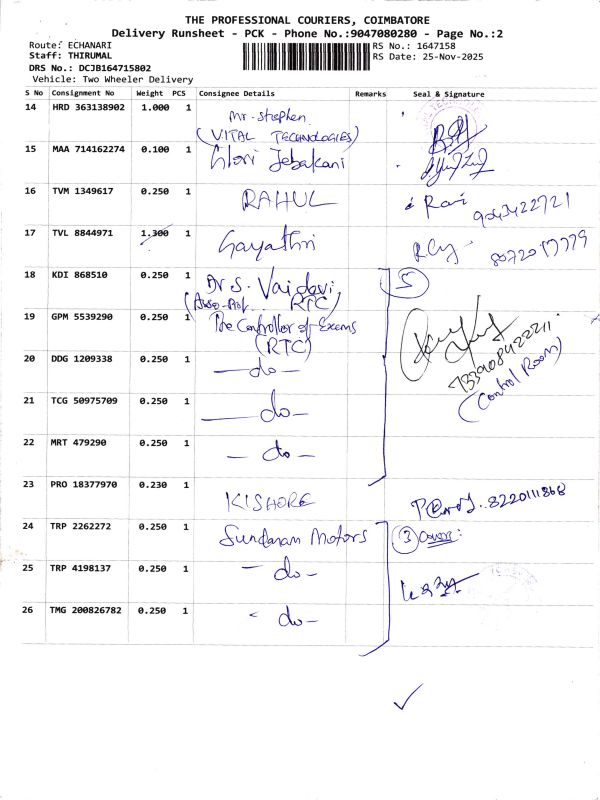 THE PROFESSIONAL COURIERS, COIMBATORE
Delivery Runsheet - PCK - Phone No.:9047080280 - Page No.:2
Route: ECHANARI
Staff: THIRUMAL
DRS No.: DCJB164715802
Vehicle: Two Wheeler Delivery
RS No.: 1647158
RS Date: 25-Nov-2025
S No Consignment No Weight PCS Consignee Details Remarks Seal & Signature
14 HRD 363138902 1.000 1 Mr. Stephen
(VITAL TECHNOLOGIES)
15 MAA 714162274 0.100 1 Glori Jebakani
16 TVM 1349617 0.250 1 RAHUL Ravi 9043422721
17 TVL 8844971 1.300 1 Gayathri
18 KDI 868510 0.250 1 Dr S. Vaidevi, 5
(Asso-Prof... RTC)
19 GPM 5539290 0.250 1 The Controller of Exams
(RTC)
20 DDG 1209338 0.250 1 — do —
(Control Room)
21 TCG 50975709 0.250 1 — do
22 MRT 479290 0.250 1 — do —
23 PRO 18377970 0.230 1 KISHORE 8220111868
24 TRP 2262272 0.250 1 Sundaram Motors 3 Covers:
25 TRP 4198137 0.250 1 — do —
26 TMG 200826782 0.250 1 - do —